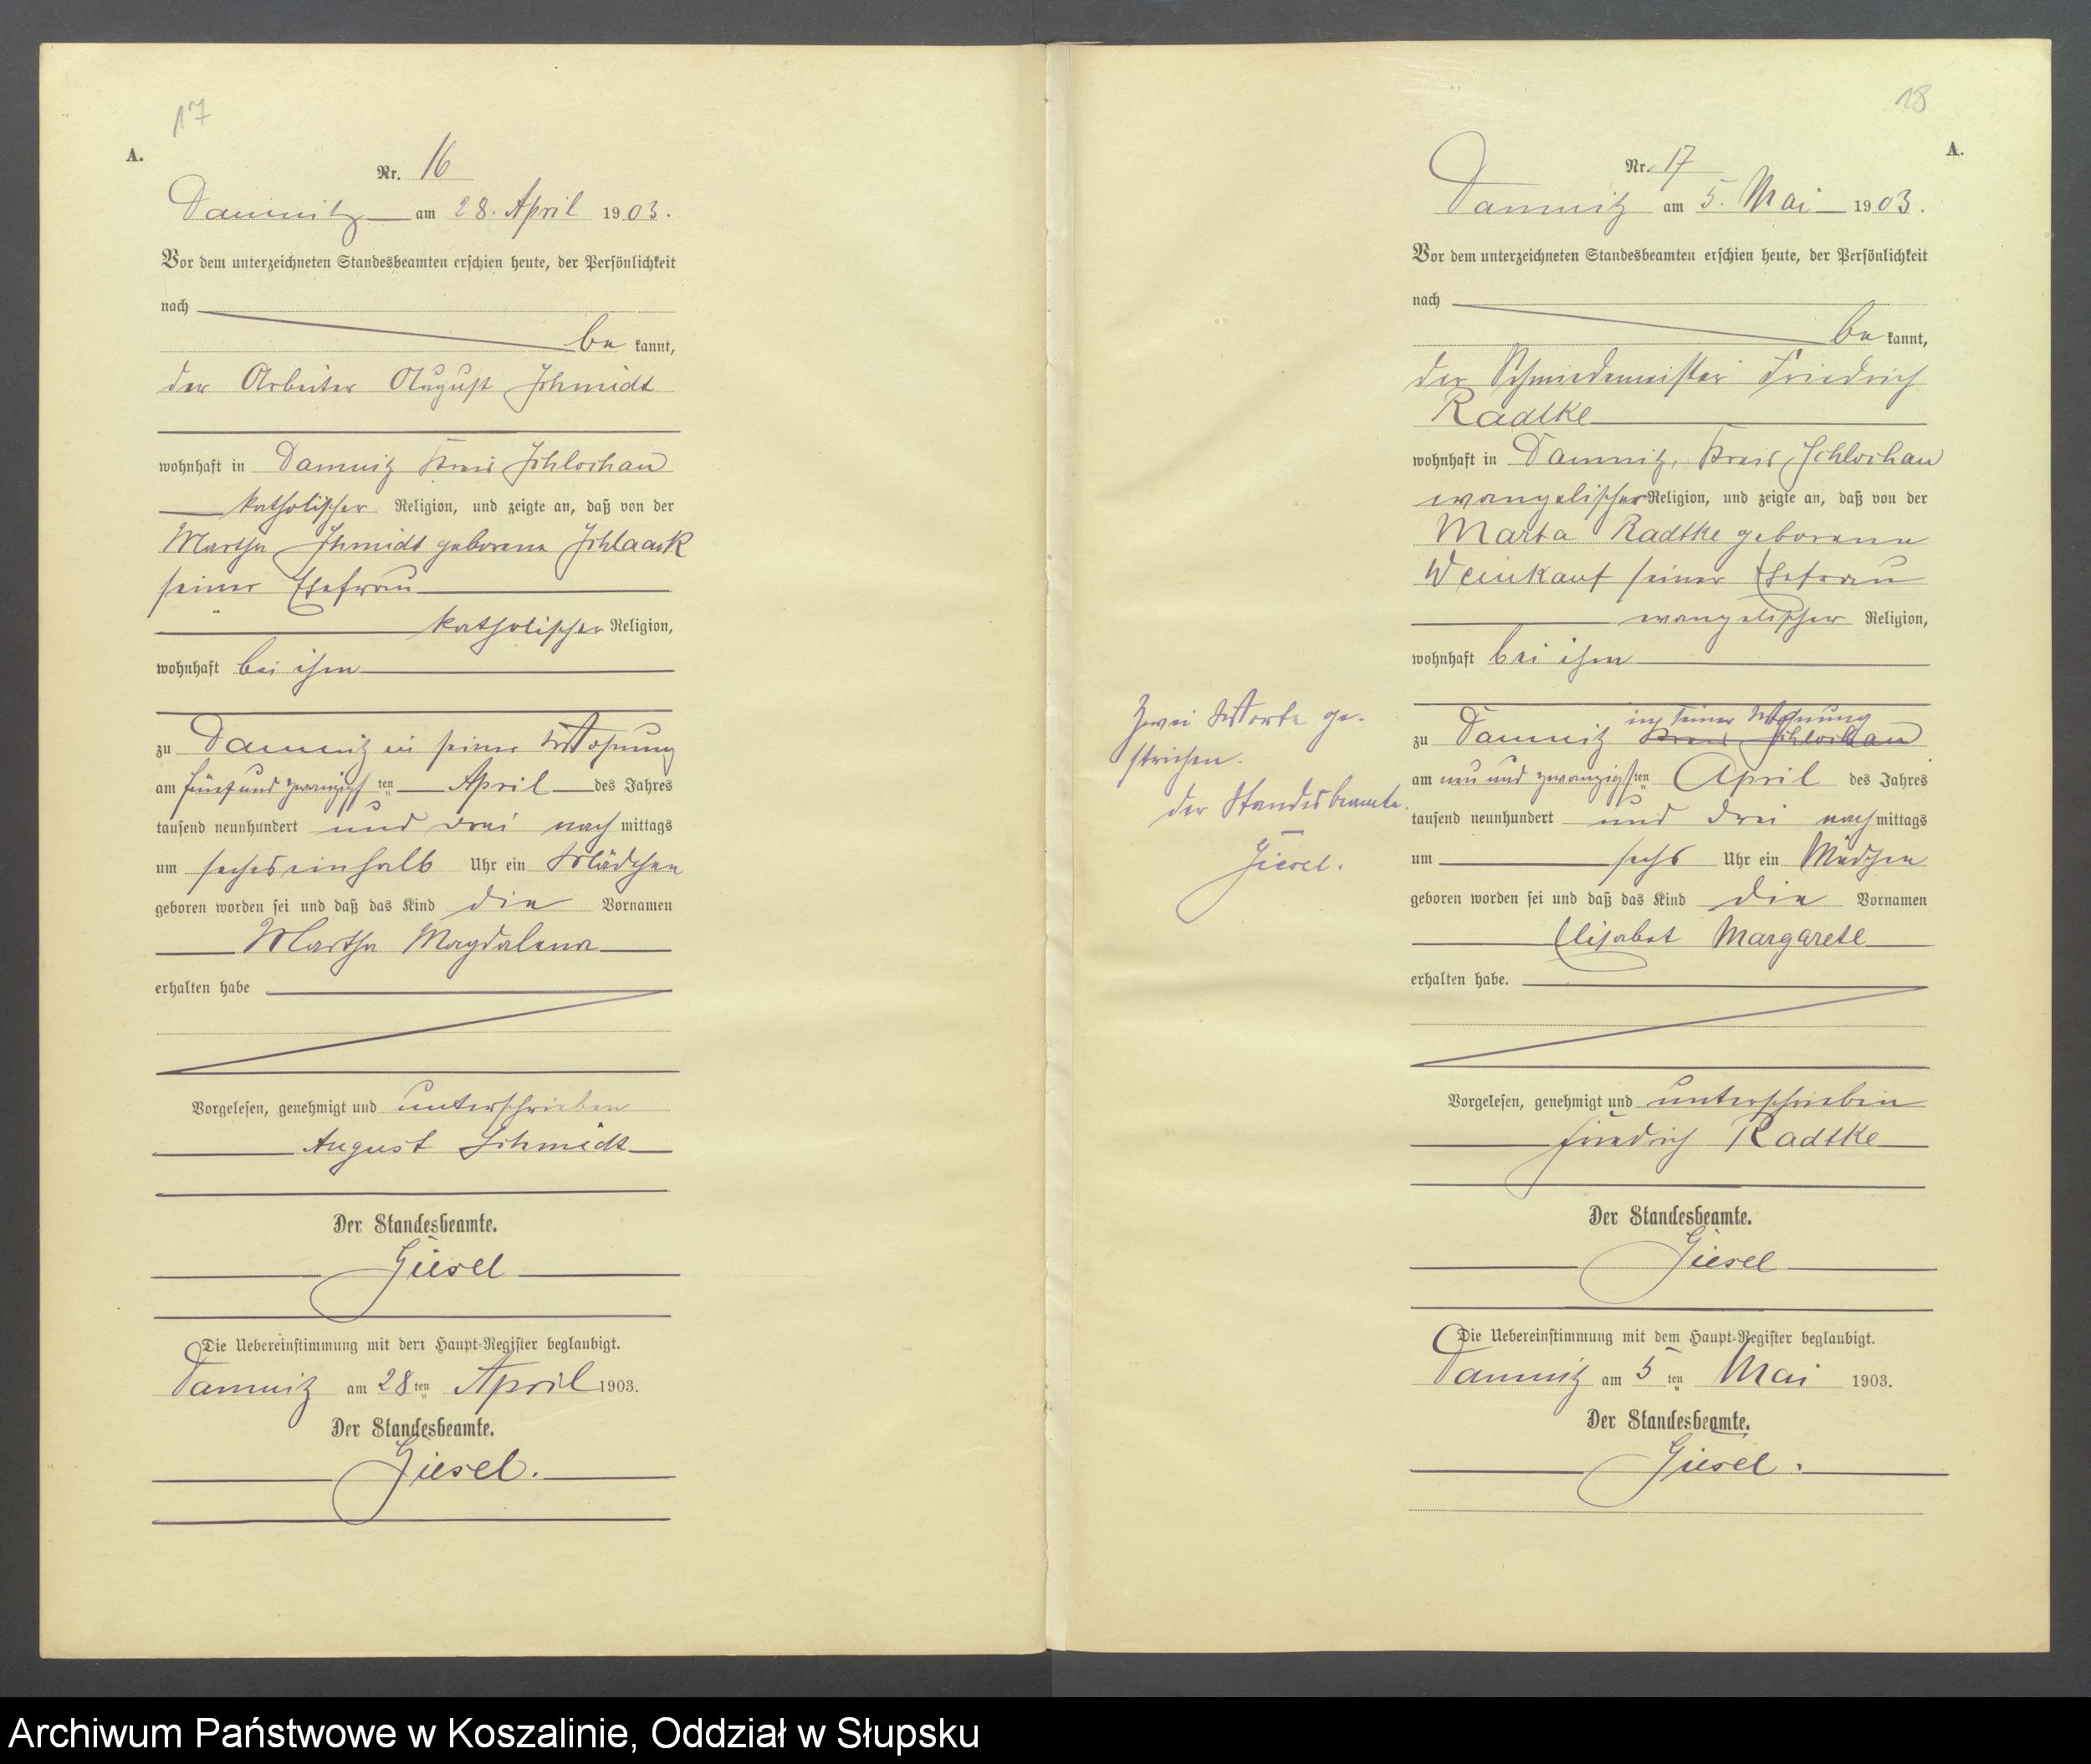 17
A.
Nr. 16
Damnitz am 28. April 1903.
Vor dem unterzeichneten Standesbeamten erschien heute, der Persönlichkeit
nach
be kannt,
der Arbeiter August Schmidt
wohnhaft in Damnitz Kreis Schlochau
katholischer Religion, und zeigte an, daß von der
Martha Schmidt geborene Schlaack
seiner Ehefrau
katholischer Religion,
wohnhaft bei ihm
zu Damnitz in seiner Wohnung
am fünfundzwanzigsten April des Jahres
tausend neunhundert und drei nach mittags
um sechseinhalb Uhr ein Mädchen
geboren worden sei und daß das Kind die Vornamen
Martha Magdalena
erhalten habe
Vorgelesen, genehmigt und unterschrieben
August Schmidt
Der Standesbeamte.
Giesel
Die Uebereinstimmung mit dem Haupt-Register beglaubigt.
Damnitz am 28 ten April 1903.
Der Standesbeamte.
Giesel.
18
A.
Nr. 17
Damnitz am 5. Mai 1903.
Vor dem unterzeichneten Standesbeamten erschien heute, der Persönlichkeit
nach
be kannt,
der Schmiedemeister Friedrich
Radtke
wohnhaft in Damnitz, Kreis Schlochau
evangelischer Religion, und zeigte an, daß von der
Marta Radtke geborene
Weinkauf seiner Ehefrau
evangelischer Religion,
wohnhaft bei ihm
in seiner Wohnung
zu Damnitz Kreis Schlochau
am neunundzwanzigsten April des Jahres
tausend neunhundert und drei nach mittags
um sechs Uhr ein Mädchen
geboren worden sei und daß das Kind die Vornamen
Elisabet Margarete
erhalten habe.
Zwei Worte ge-
strichen.
der Standesbeamte.
Giesel.
Vorgelesen, genehmigt und unterschrieben
Friedrich Radtke
Der Standesbeamte.
Giesel
Die Uebereinstimmung mit dem Haupt-Register beglaubigt.
Damnitz am 5 ten Mai 1903.
Der Standesbeamte.
Giesel.
Archiwum Państwowe w Koszalinie, Oddział w Słupsku